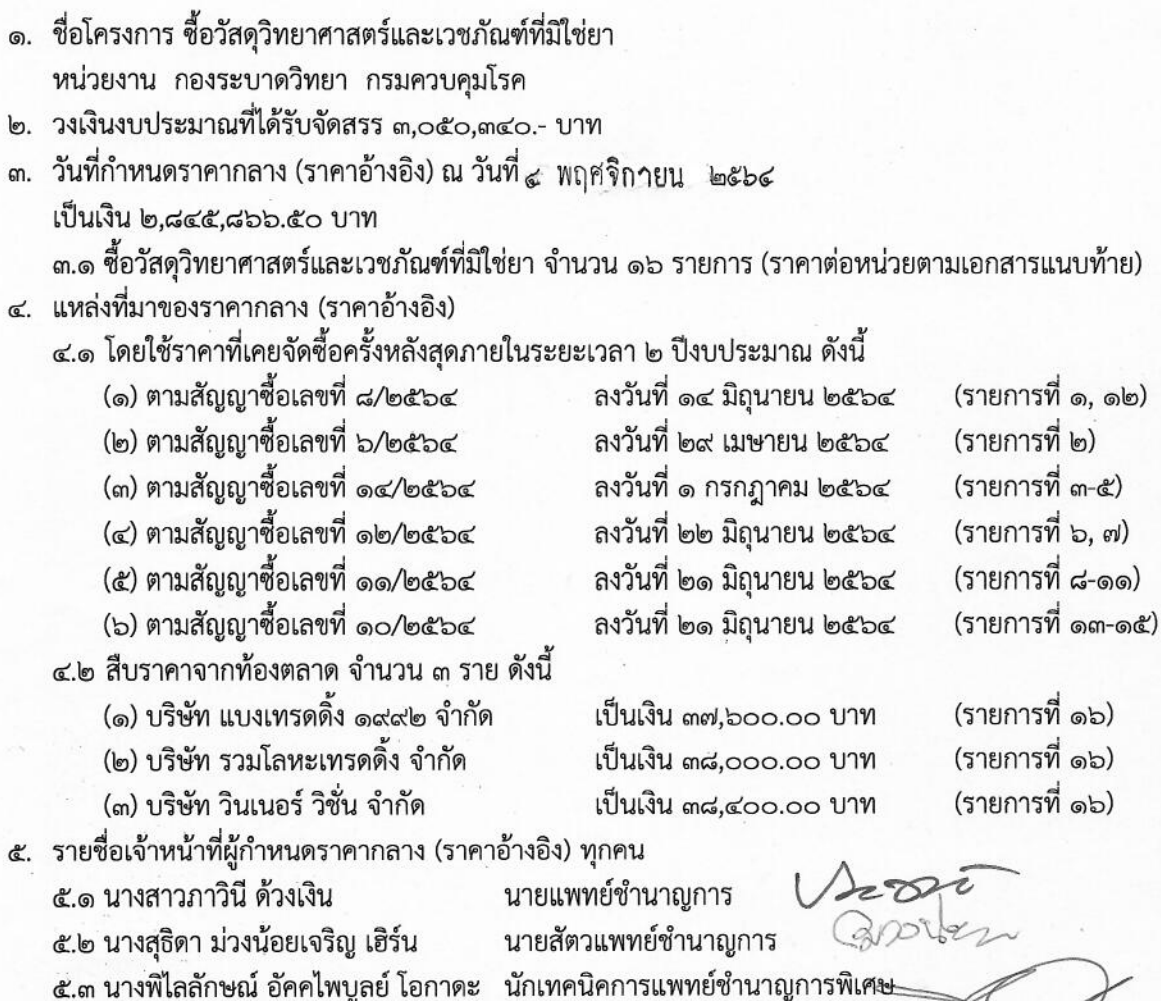 ๑. ชื่อโครงการ ซื้อวัสดุวิทยาศาสตร์และเวชภัณฑ์ที่มิใช่ยา
หน่วยงาน กองระบาดวิทยา กรมควบคุมโรค
๒. วงเงินงบประมาณที่ได้รับจัดสรร ๓,๐๕๐,๓๔๐.- บาท
๓. วันที่กำหนดราคากลาง (ราคาอ้างอิง) ณ วันที่ ๔ พฤศจิกายน ๒๕๖๔
เป็นเงิน ๒,๘๔๕,๘๖๖.๕๐ บาท
๓.๑ ซื้อวัสดุวิทยาศาสตร์และเวชภัณฑ์ที่มิใช่ยา จำนวน ๑๖ รายการ (ราคาต่อหน่วยตามเอกสารแนบท้าย)
๔. แหล่งที่มาของราคากลาง (ราคาอ้างอิง)
๔.๑ โดยใช้ราคาที่เคยจัดซื้อครั้งหลังสุดภายในระยะเวลา ๒ ปีงบประมาณ ดังนี้
(๑) ตามสัญญาซื้อเลขที่ ๘/๒๕๖๔ ลงวันที่ ๑๔ มิถุนายน ๒๕๖๔ (รายการที่ ๑, ๑๒)
(๒) ตามสัญญาซื้อเลขที่ ๖/๒๕๖๔ ลงวันที่ ๒๙ เมษายน ๒๕๖๔ (รายการที่ ๒)
(๓) ตามสัญญาซื้อเลขที่ ๑๔/๒๕๖๔ ลงวันที่ ๑ กรกฎาคม ๒๕๖๔ (รายการที่ ๓-๕)
(๔) ตามสัญญาซื้อเลขที่ ๑๒/๒๕๖๔ ลงวันที่ ๒๒ มิถุนายน ๒๕๖๔ (รายการที่ ๖, ๗)
(๕) ตามสัญญาซื้อเลขที่ ๑๑/๒๕๖๔ ลงวันที่ ๒๑ มิถุนายน ๒๕๖๔ (รายการที่ ๘-๑๑)
(๖) ตามสัญญาซื้อเลขที่ ๑๐/๒๕๖๔ ลงวันที่ ๒๑ มิถุนายน ๒๕๖๔ (รายการที่ ๑๓-๑๕)
๔.๒ สืบราคาจากท้องตลาด จำนวน ๓ ราย ดังนี้
(๑) บริษัท แบงเทรดดิ้ง ๑๙๙๒ จำกัด เป็นเงิน ๓๗,๖๐๐.๐๐ บาท (รายการที่ ๑๖)
(๒) บริษัท รวมโลหะเทรดดิ้ง จำกัด เป็นเงิน ๓๘,๐๐๐.๐๐ บาท (รายการที่ ๑๖)
(๓) บริษัท วินเนอร์ วิชั่น จำกัด เป็นเงิน ๓๘,๔๐๐.๐๐ บาท (รายการที่ ๑๖)
๕. รายชื่อเจ้าหน้าที่ผู้กำหนดราคากลาง (ราคาอ้างอิง) ทุกคน
๕.๑ นางสาวภาวินี ด้วงเงิน นายแพทย์ชำนาญการ
๕.๒ นางสุธิดา ม่วงน้อยเจริญ เฮิร์น นายสัตวแพทย์ชำนาญการ
๕.๓ นางพิไลลักษณ์ อัคคไพบูลย์ โอกาดะ นักเทคนิคการแพทย์ชำนาญการพิเศษ